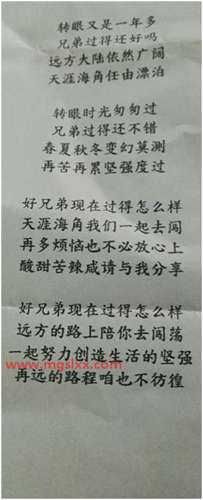 转眼又是一年多
兄弟过得还好吗
远方大陆依然广阔
天涯海角任由漂泊
转眼时光匆匆过
兄弟过得还不错
春夏秋冬变幻莫测
再苦再累坚强度过
好兄弟现在过得怎么样
天涯海角我们一起去闯
再多烦恼也不必放心上
酸甜苦辣咸请与我分享
好兄弟现在过得怎么样
远方的路上陪你去闯荡
一起努力创造生活的坚强
www.mgslxx.com
再远的路程咱也不彷徨